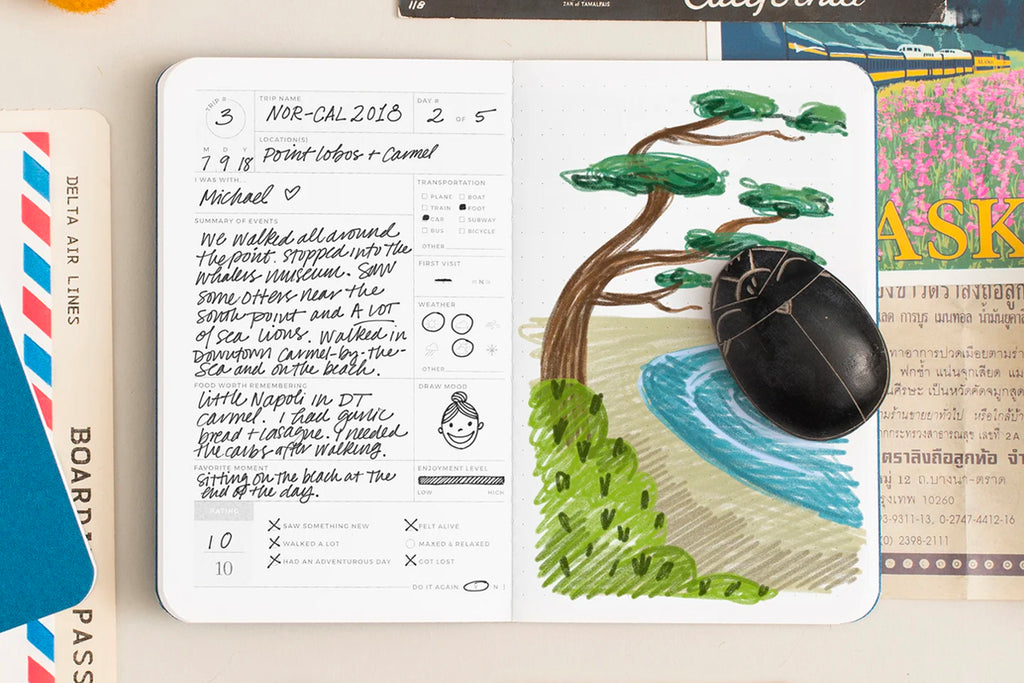 118
ZAN of TAMALPAIS
California
DELTA AIR LINES
BOARD
PASS
TRIP #
3
TRIP NAME
NOR-CAL 2018
DAY #
2 OF 5
M D Y
7 9 18
LOCATION(S)
Point Lobos + Carmel
I WAS WITH...
Michael ♡
TRANSPORTATION
PLANE BOAT
TRAIN FOOT
CAR SUBWAY
BUS BICYCLE
OTHER
SUMMARY OF EVENTS
We walked all around
the point. Stopped into the
Whalers Museum. Saw
some otters near the
south point and A LOT
of sea lions. Walked in
Downtown Carmel-by-the-
Sea and on the beach.
FIRST VISIT
N
WEATHER
OTHER
FOOD WORTH REMEMBERING
Little Napoli in DT
Carmel. I had garlic
bread + lasagne. I needed
the carbs after walking.
DRAW MOOD
FAVORITE MOMENT
Sitting on the beach at the
end of the day.
ENJOYMENT LEVEL
LOW HIGH
RATING
10
10
SAW SOMETHING NEW
WALKED A LOT
HAD AN ADVENTUROUS DAY
FELT ALIVE
MAXED & RELAXED
GOT LOST
DO IT AGAIN Y N
ALASKA
ASK
ตราลิงถือลูกท้อ
หมู่ 12 ถ.บางนา-ตราด
กรุงเทพ 10260
0-2747-4412-16
(0) 2398-2111